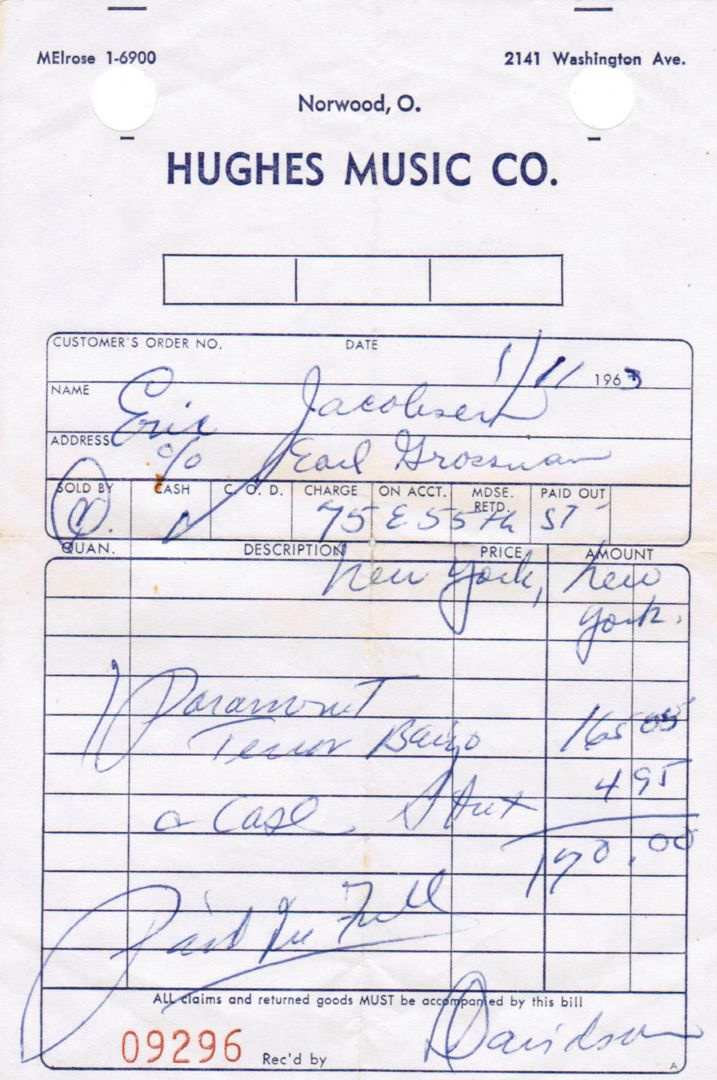 MElrose 1-6900 2141 Washington Ave.
Norwood, O.
HUGHES MUSIC CO.
CUSTOMER'S ORDER NO. DATE 1/11 1963
NAME Eric Jacobsen
ADDRESS c/o Earl Grossman
SOLD BY CASH C. O. D. CHARGE ON ACCT. MDSE. RETD. PAID OUT
75 E 55th ST
QUAN. DESCRIPTION PRICE AMOUNT
New York, New
York.
1 Paramount
Tenor Banjo 165 05
4 95
a Case S Tax
170.00
Paid In Full
ALL claims and returned goods MUST be accompanied by this bill
09296 Rec'd by Davidson
A